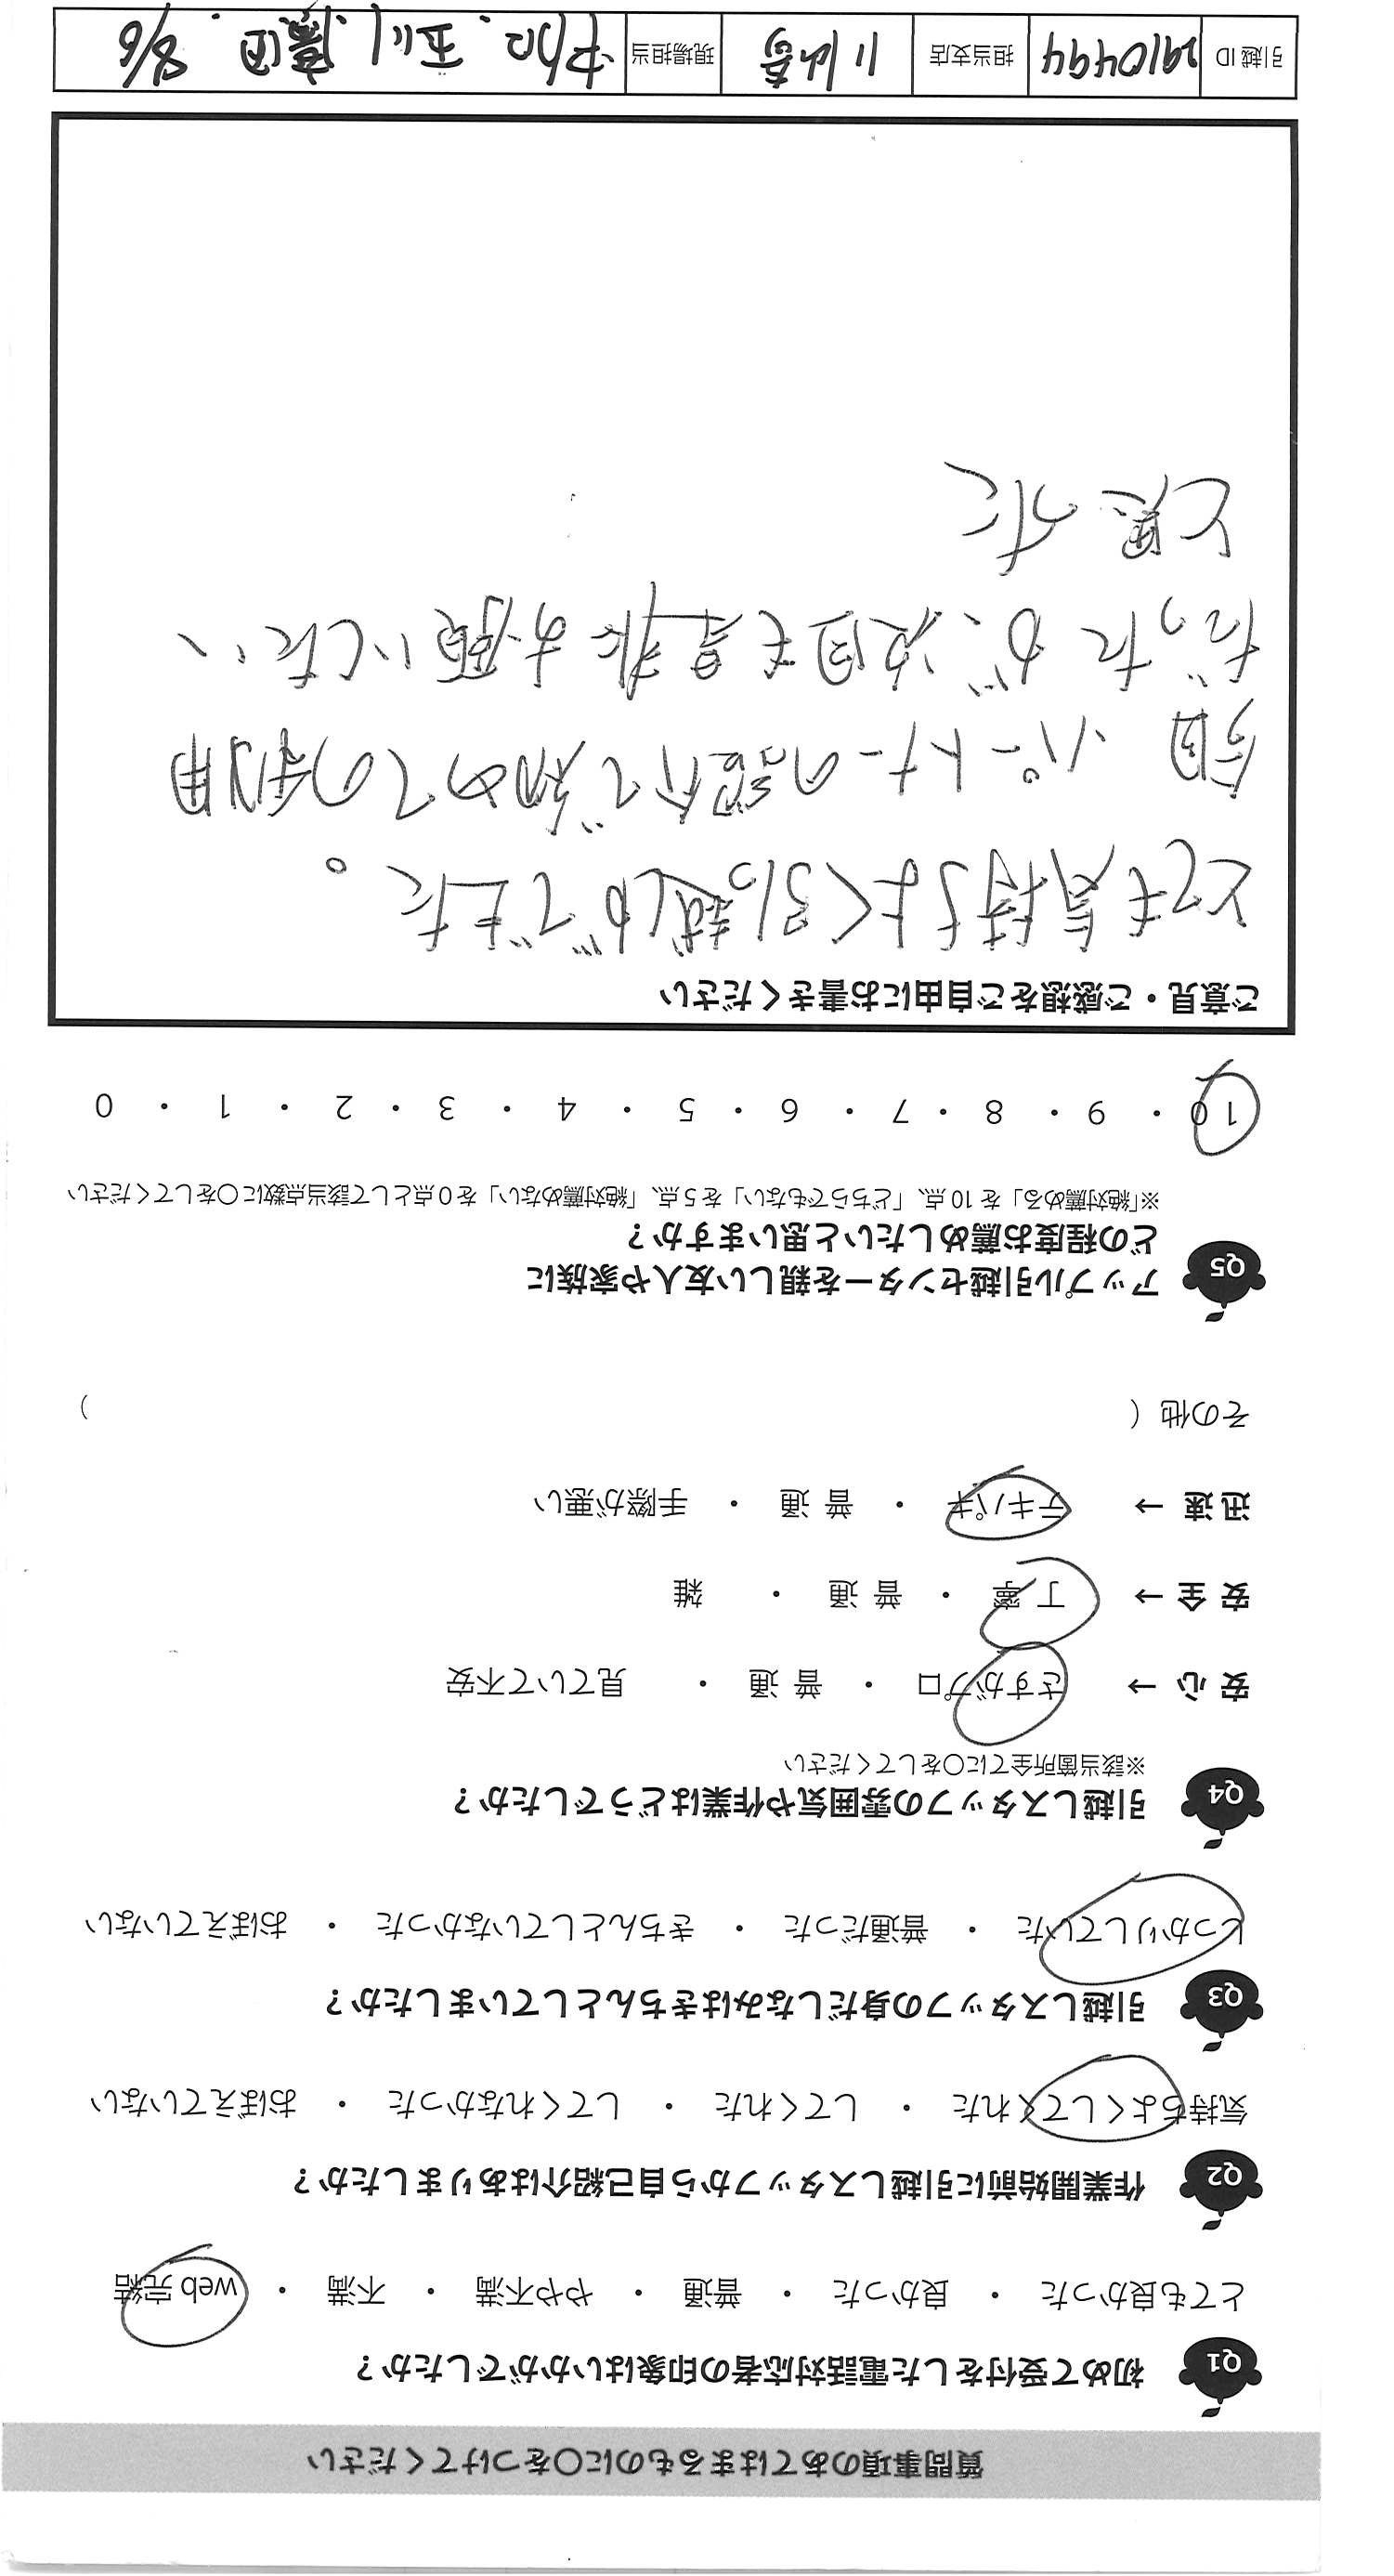 質問事項のあてはまるものに○をつけてください
Q1 初めて受付をした電話対応者の印象はいかがでしたか？
とても良かった ・ 良かった ・ 普通 ・ やや不満 ・ 不満 ・ web 完結
Q2 作業開始前に引越しスタッフから自己紹介はありましたか？
気持ちよくしてくれた ・ してくれた ・ してくれなかった ・ おぼえていない
Q3 引越しスタッフの身だしなみはきちんとしていましたか？
しっかりしていた ・ 普通だった ・ きちんとしていなかった ・ おぼえていない
Q4 引越しスタッフの雰囲気や作業はどうでしたか？
※該当箇所全てに○をしてください
安 心 → さすがプロ ・ 普 通 ・ 見ていて不安
安 全 → 丁 寧 ・ 普 通 ・ 雑
迅 速 → テキパキ ・ 普 通 ・ 手際が悪い
その他（ ）
Q5 アップル引越センターを親しい友人や家族に
どの程度お薦めしたいと思いますか？
※「絶対薦める」を 10 点、「どちらでもない」を 5 点、「絶対薦めない」を 0 点として該当点数に○をしてください
10 ・ 9 ・ 8 ・ 7 ・ 6 ・ 5 ・ 4 ・ 3 ・ 2 ・ 1 ・ 0
ご意見・ご感想をご自由にお書きください
とても気持ちよく引っ越しができた。
今回 パートナーの紹介で初めての利用
だったが、次回も是非お願いしたい
と思った
引越 ID 2910494 担当支店 川崎 現場担当 玉川 8/6